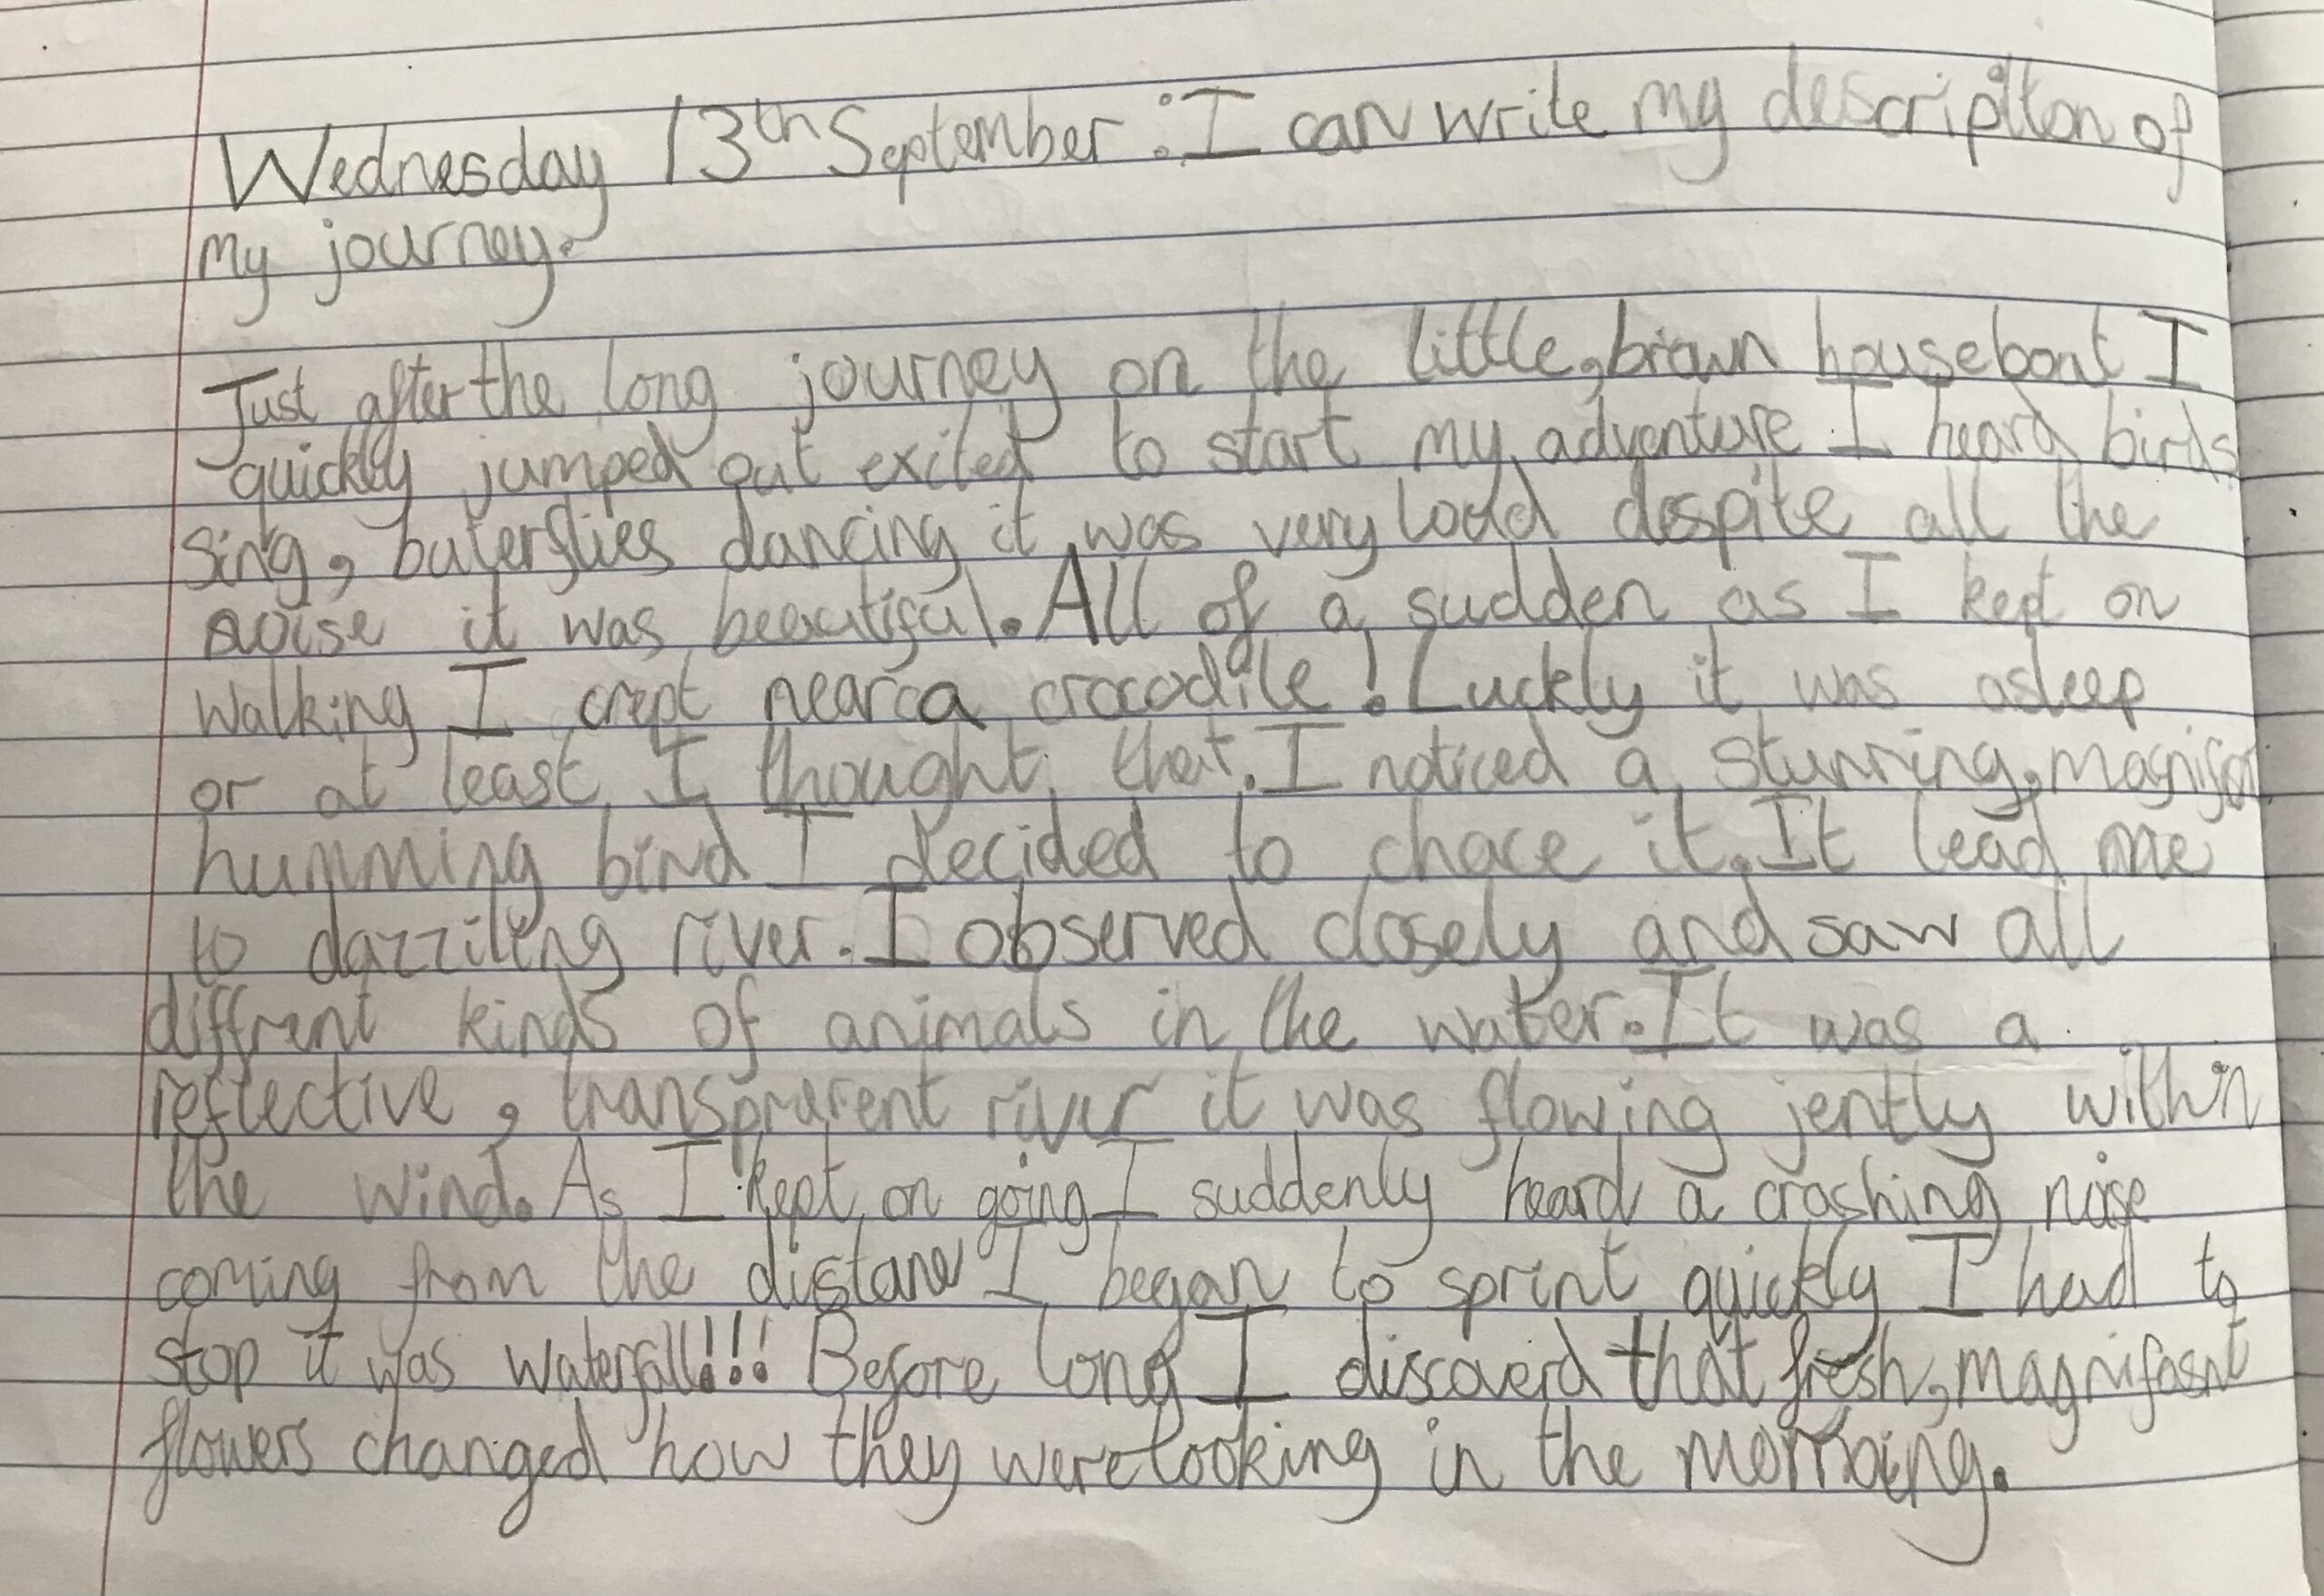 Wednesday 13th September : I can write my description of
my journey.
Just after the long journey on the little, brown houseboat I
quickly jumped out exited to start my adventure I heard birds
sing, buterflies dancing it was very loud despite all the
noise it was beautiful. All of a sudden as I kept on
walking I crept near a crocodile! Luckly it was asleep
or at least I thought that. I noticed a stunning,
humming bird I decided to chace it. It lead me
to dazziling river. I observed closely and saw all
diffrent kinds of animals in the water. It was a
reflective, transprarent river it was flowing jently within
the wind. As I kept on going I suddenly heard a crashing noise
coming from the distane I began to sprint quickly I had to
stop it was waterfall!!! Before long I discoverd that fresh, magnifasnt
flowers changed how they were looking in the morning.